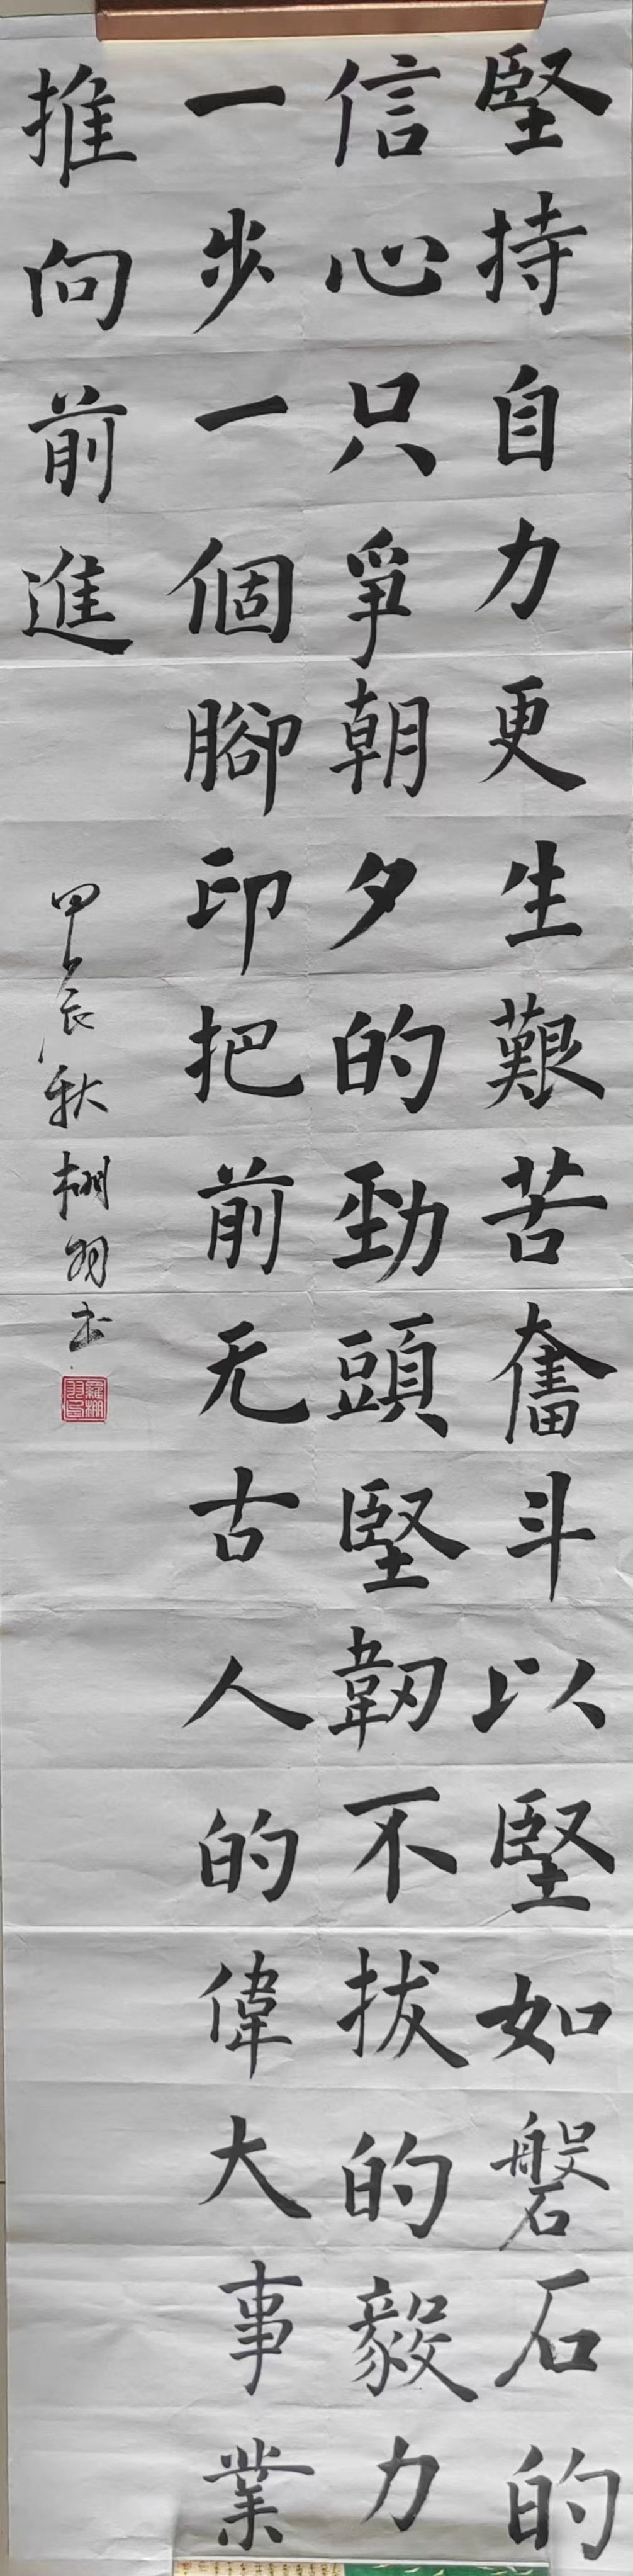 堅持自力更生艱苦奮斗以堅如磐石的
信心只爭朝夕的勁頭堅韌不拔的毅力
一步一個腳印把前无古人的偉大事業
推向前進
甲辰秋棚羽书
羅棚羽印